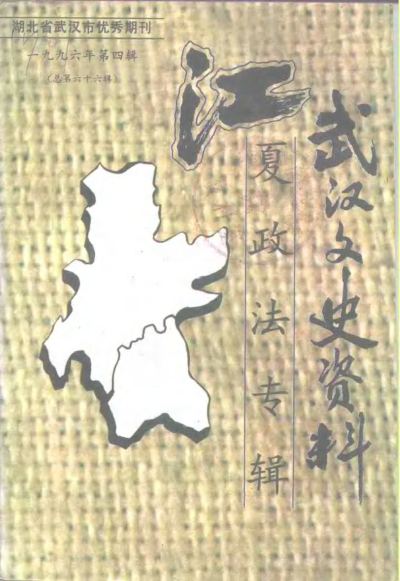 湖北省武汉市优秀期刊
一九九六年第四辑
(总第六十六辑)
江
夏政法专辑
武汉文史资料